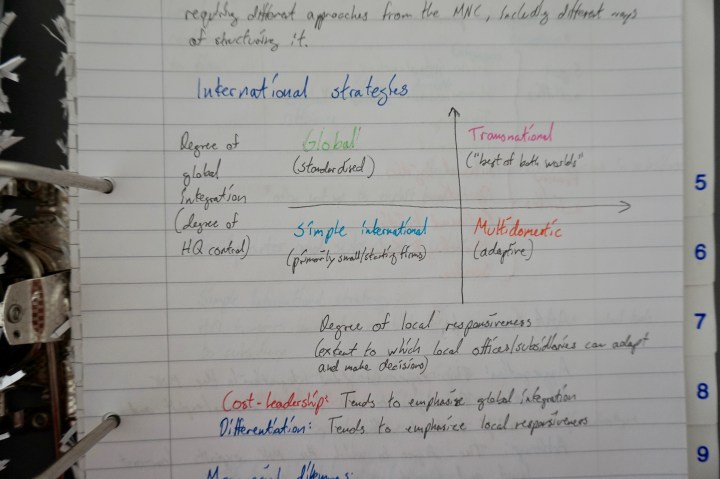 requiring different approaches from the MNC, including different ways
of structuring it.
International strategies
Degree of
global
integration
(degree of
HQ control)
Global
(standardised)
Transnational
("best of both worlds"
Simple international
(primarily small/starting firms)
Multidomestic
(adaptive)
Degree of local responsiveness
(extent to which local offices/subsidiaries can adapt
and make decisions)
Cost-leadership: Tends to emphasize global integration
Differentiation: Tends to emphasize local responsiveness
5
6
7
8
9